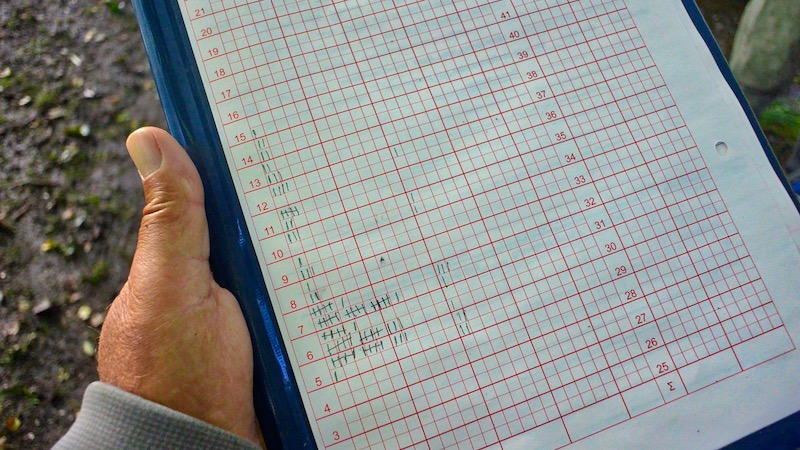 21
20
19
18
17
16
15
14
13
12
11
10
9
8
7
6
5
4
3
41
40
39
38
37
36
35
34
33
32
31
30
29
28
27
26
25
Σ